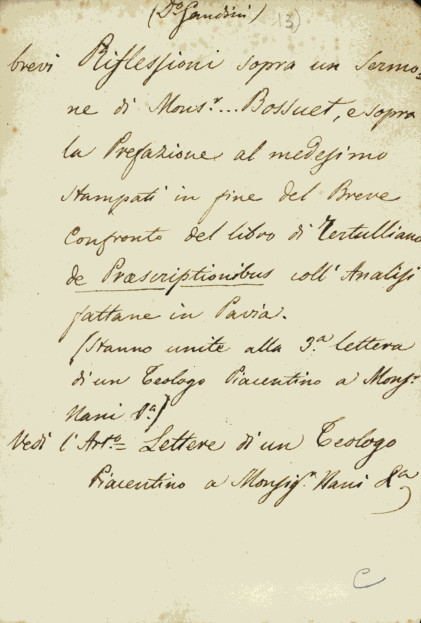 (Dc Gandini)
13)
brevi Riflessioni sopra un Sermo=
ne di Monsr... Bossuet, e sopra
la Prefazione al medesimo
stampati in fine del Breve
Confronto del libro di Tertulliano
de Præscriptionibus coll'Analisi
fattane in Pavia.
(Stanno unite alla 3.a lettera
di un Teologo Piacentino a Monsr.
Nani
Vedi l'Arto= Lettere di un Teologo
Piacentino a Monsigr. Nani
C